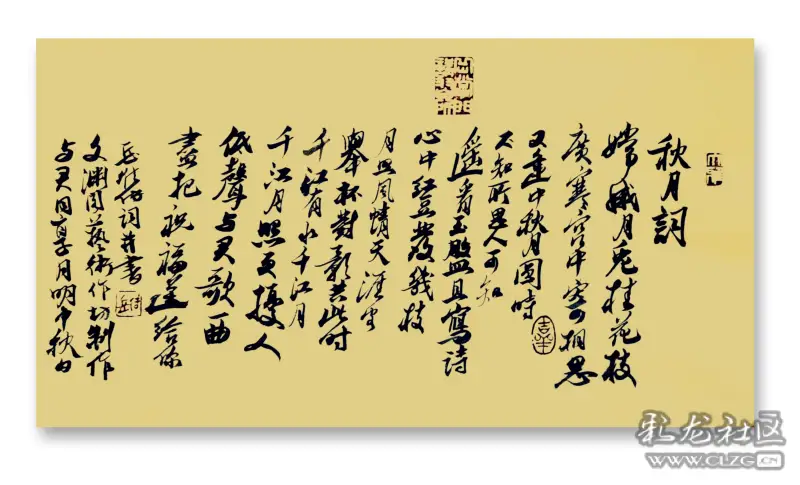 秋月詞
嫦娥月兔桂花枝
廣寒宫中寄相思
又逢中秋月圆時
不知所思人可知
遥看玉盤且寫詩
心中红豆發幾枝
月照風情天涯
舉杯對影共此时
千江有水千江月
千江月照更擾人
低聲与君歌一曲
盡把祝福送给你
词并書
文渊阁藝術作坊制作
与君同享月明中秋日
彩龙社区
WWW.CLZG.CN